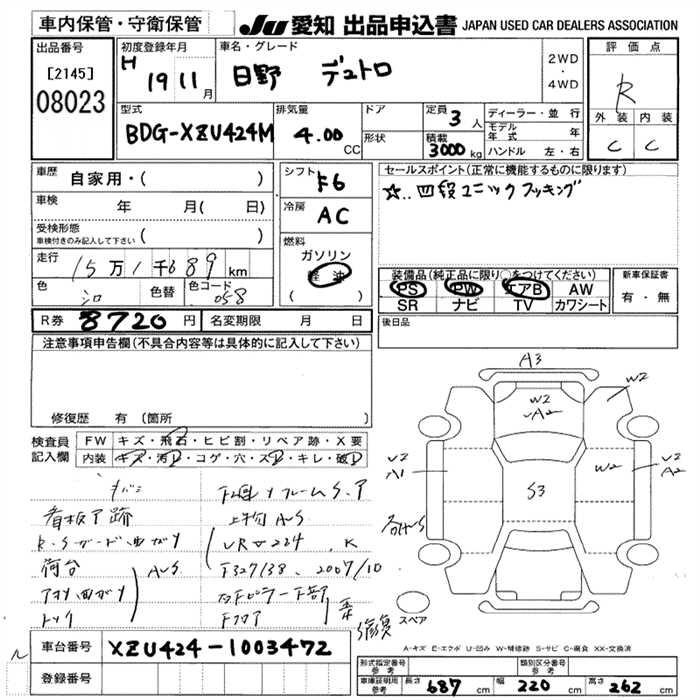 車内保管・守衛保管
JU 愛知 出品申込書 JAPAN USED CAR DEALERS ASSOCIATION
出品番号
[2145]
08023
初度登録年月
H 19 11 月
車名・グレード
日野 デュトロ
2WD
・
4WD
評価点
R
外装 内装
C C
型式
BDG-XZU424M
排気量
4.00 CC
ドア
形状
定員 3 人
積載 3000 kg
ディーラー・並行
モデル年式 年
ハンドル 左・右
車歴 自家用・( )
車検 年 月( 日)
受検形態
車検付きのみ記入して下さい ( )
走行 15万1千689 km
色 シロ 色替 色コード 058
シフト F6
冷房 AC
燃料
ガソリン
軽油
( )
セールスポイント(正常に機能するものに限ります)
☆..四段ユニック フッキング
装備品(純正品に限り○をつけてください)
PS PW エアB AW
SR ナビ TV カワシート
新車保証書
有・無
R券 8720 円 名変期限 月 日
後日品
注意事項申告欄(不具合内容等は具体的に記入して下さい)
修復歴 有(箇所 )
検査員
記入欄
FW キズ・飛石・ヒビ割・リペア跡・X要
内装 キズ・汚・コゲ・穴・ス・キレ・破
看板ア跡
荷台
A3
W2
W2
A2
S3
W2
A1
A2
スペア
A-キズ E-エクボ U-凹み W-補修跡 S-サビ C-腐食 XX-交換済
車台番号 XZU424-1003472
登録番号
形式指定番号
参考
類別区分番号
車庫証明用
参考
長さ 687 cm 幅 220 cm 高さ 262 cm